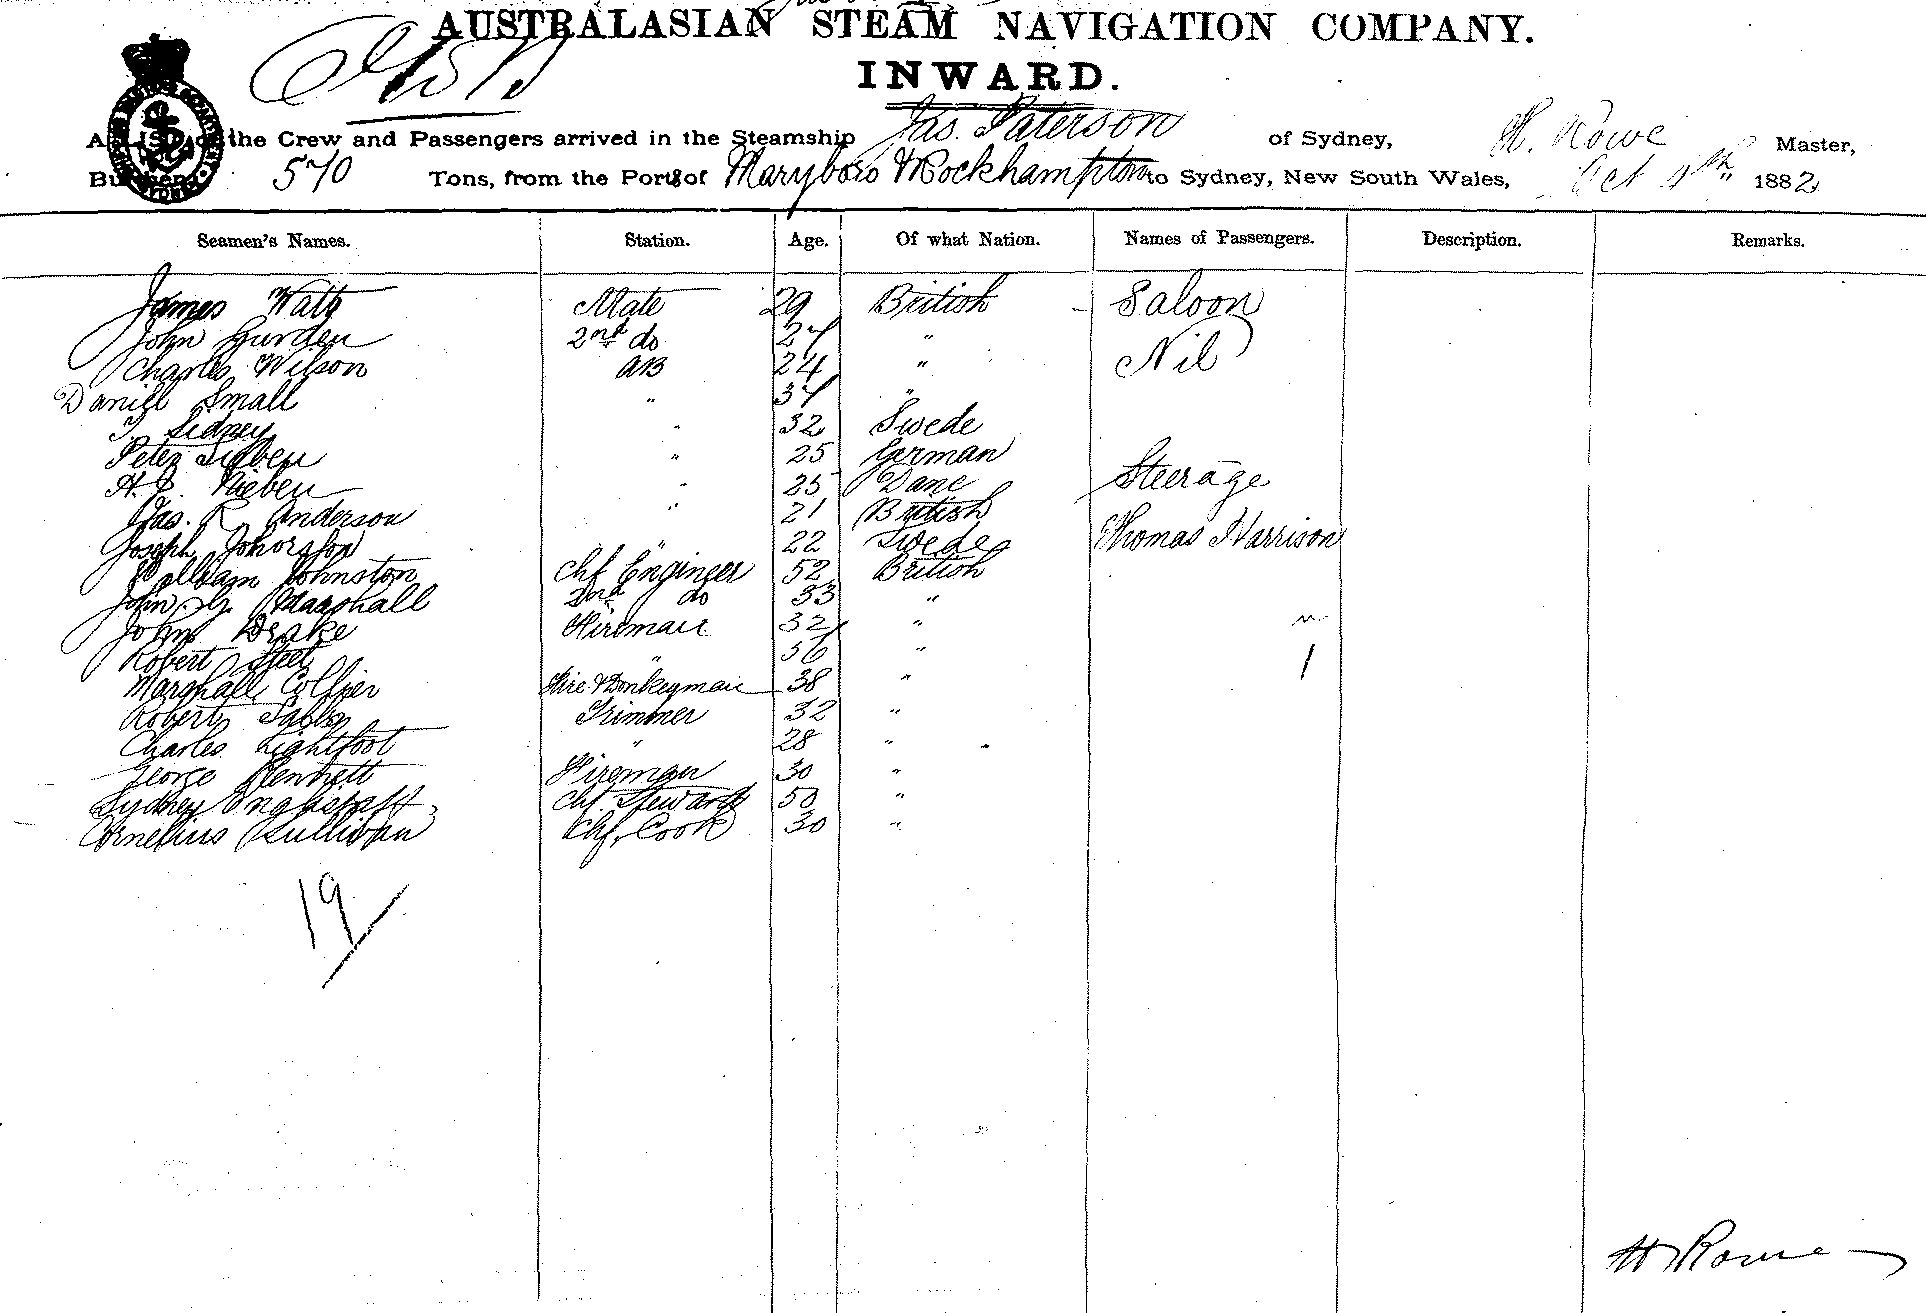 AUSTRALASIAN STEAM NAVIGATION COMPANY.
INWARD.
A LIST of the Crew and Passengers arrived in the Steamship Jas. Paterson of Sydney, H. Rowe Master,
Burthen 570 Tons, from the Port of Maryboro & Rockhampton to Sydney, New South Wales, Oct 1882
Seamen's Names. Station. Age. Of what Nation. Names of Passengers. Description. Remarks.
James Watt Mate 29 British Saloon
John Gurden 2nd do 27 "
Charles Wilson AB 24 " Nil
Daniel Small " 37 "
T. Sidney " 32 Swede
Peter " 25 German
H. J. " 25 Dane Steerage
Jas. R Anderson " 21 British
Joseph " 22 Swede Thomas Harrison
William Johnston Chf Engineer 52 British
John G. Marshall 2nd do 33 "
John Drake Fireman 32 "
Robert " 36 " 1
Marshall Collier Fire & Donkeyman 38 "
Robert Trimmer 32 "
Charles Lightfoot " 28 "
George Fireman 30 "
Sydney Chf. Steward 50 "
Cornelius Sullivan Chf. Cook 30 "
19
H Rowe